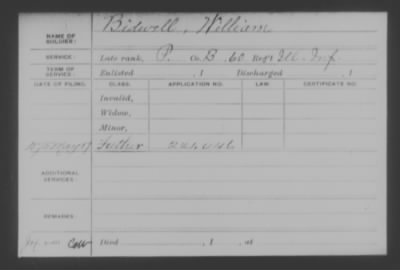 NAME OF SOLDIER: Bidwell, William
SERVICE: Late rank, P. Co. B, 60 Reg't Ill. Inf.
TERM OF SERVICE: Enlisted , 1 Discharged , 1
DATE OF FILING. CLASS. APPLICATION NO. LAW. CERTIFICATE NO.
Invalid,
Widow,
Minor,
Father
ADDITIONAL SERVICES:
REMARKS:
Died , 1 , at